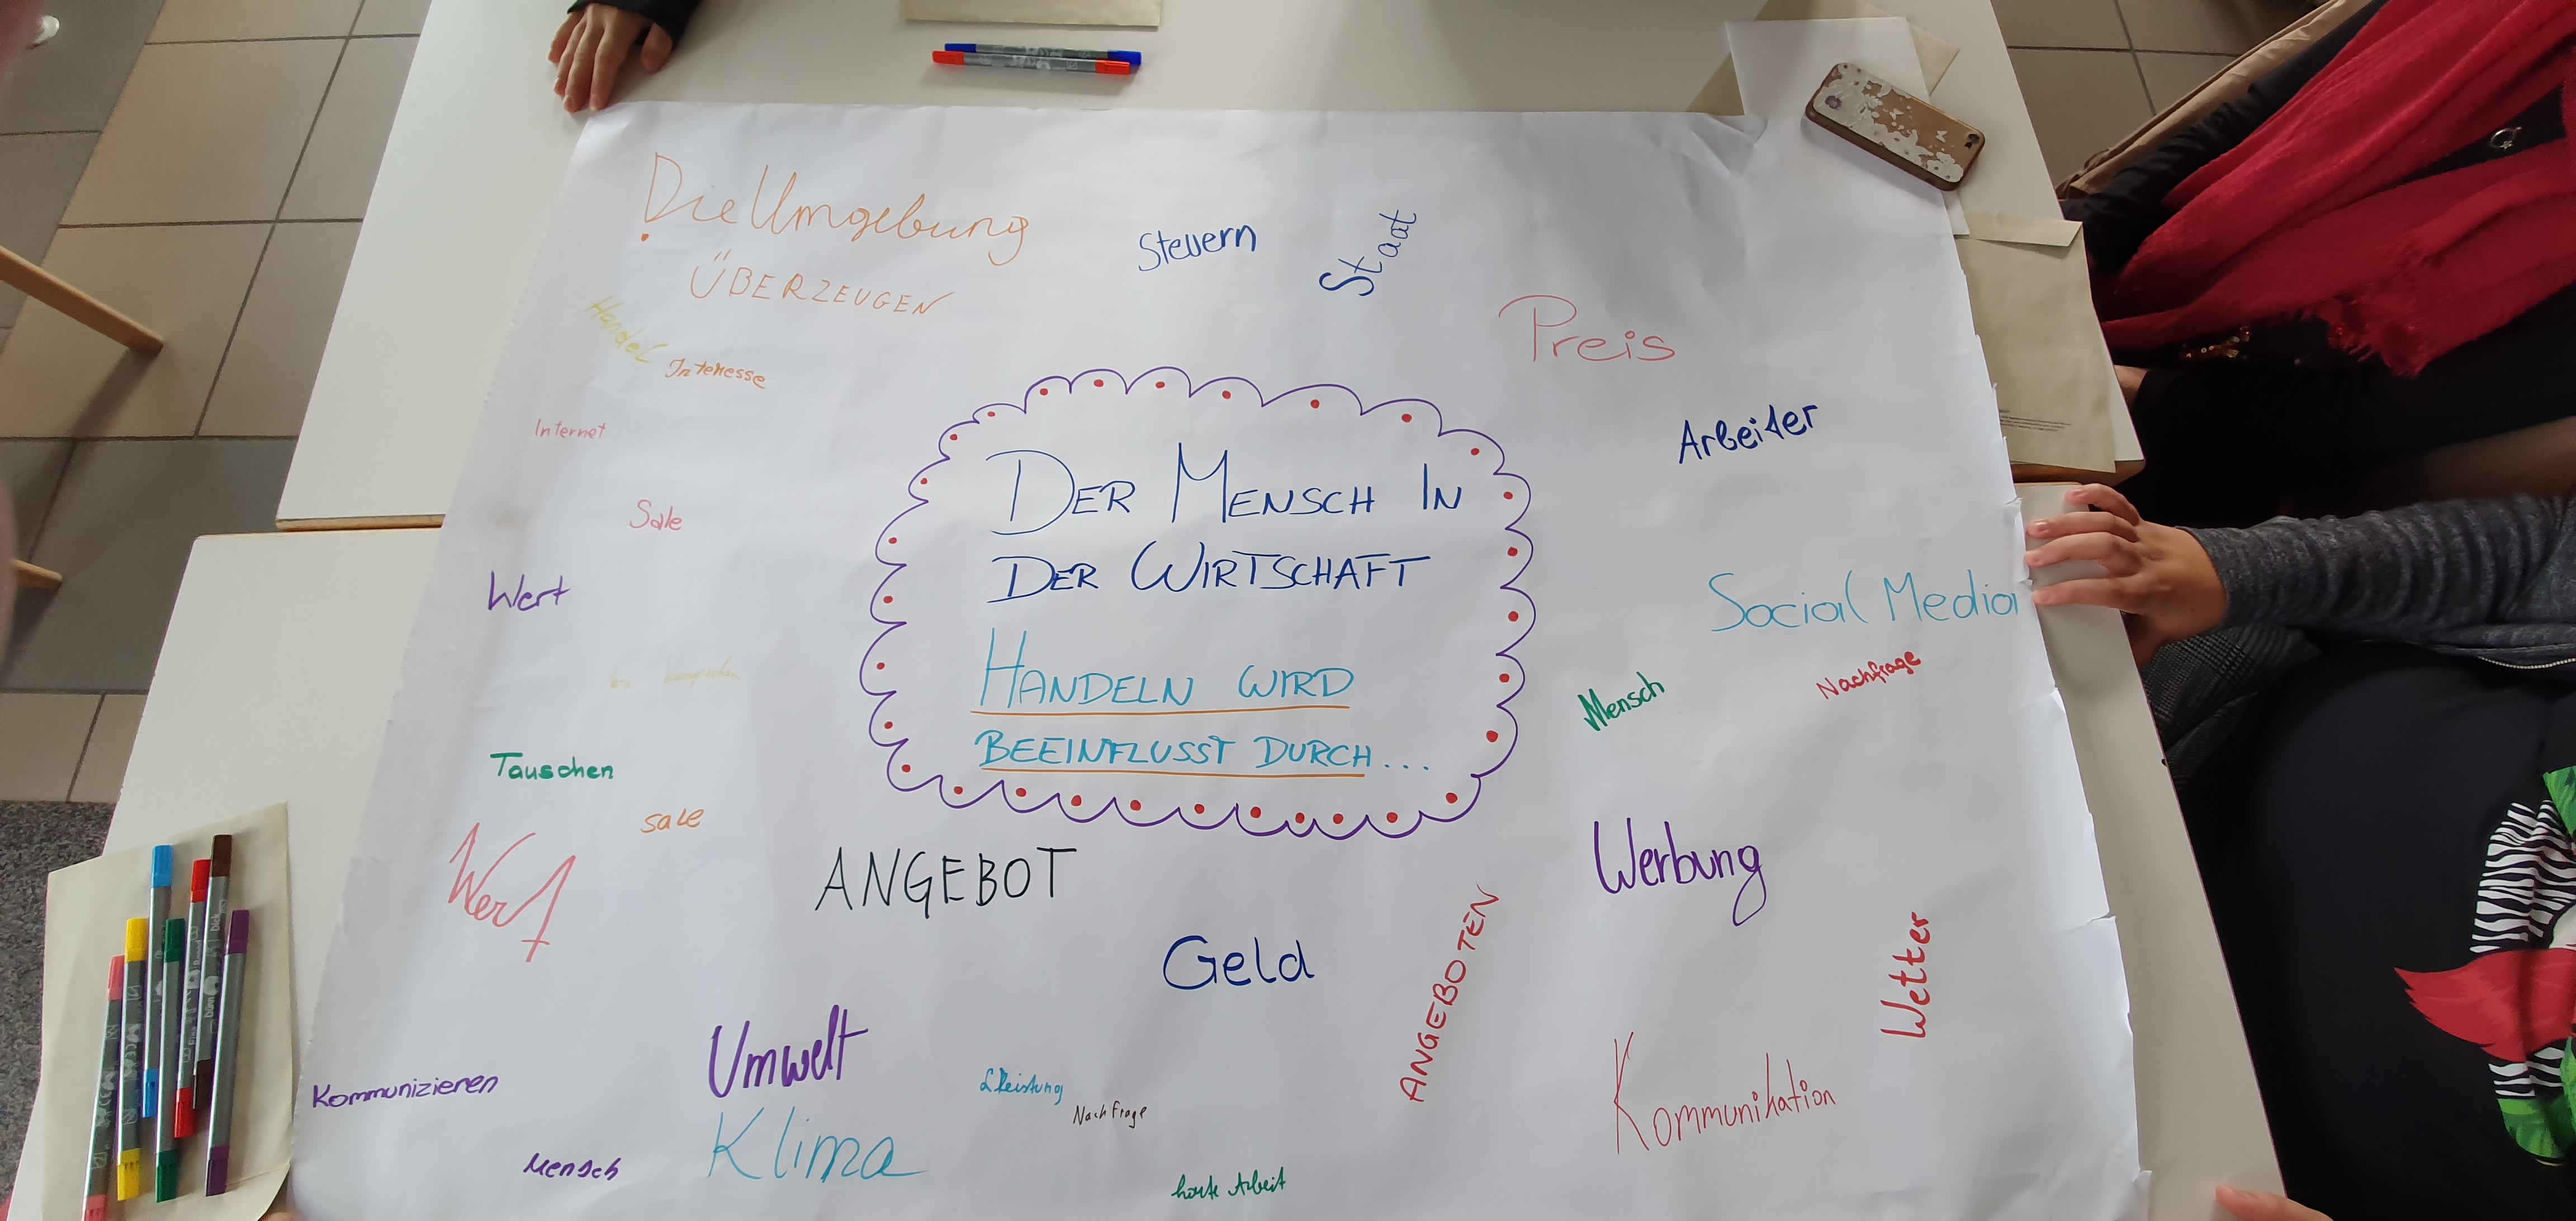 Die Umgebung
ÜBERZEUGEN
Steuern
Staat
Handel
Interesse
Preis
Internet
Arbeiter
Sale
DER MENSCH IN
DER WIRTSCHAFT
HANDELN WIRD
BEEINFLUSST DURCH...
Wert
Social Media
Mensch
Nachfrage
Tauschen
sale
Wert
ANGEBOT
Werbung
Geld
ANGEBOTEN
Wetter
Umwelt
Kommunizieren
Leistung
Nachfrage
Kommunikation
Klima
Mensch
harte Arbeit